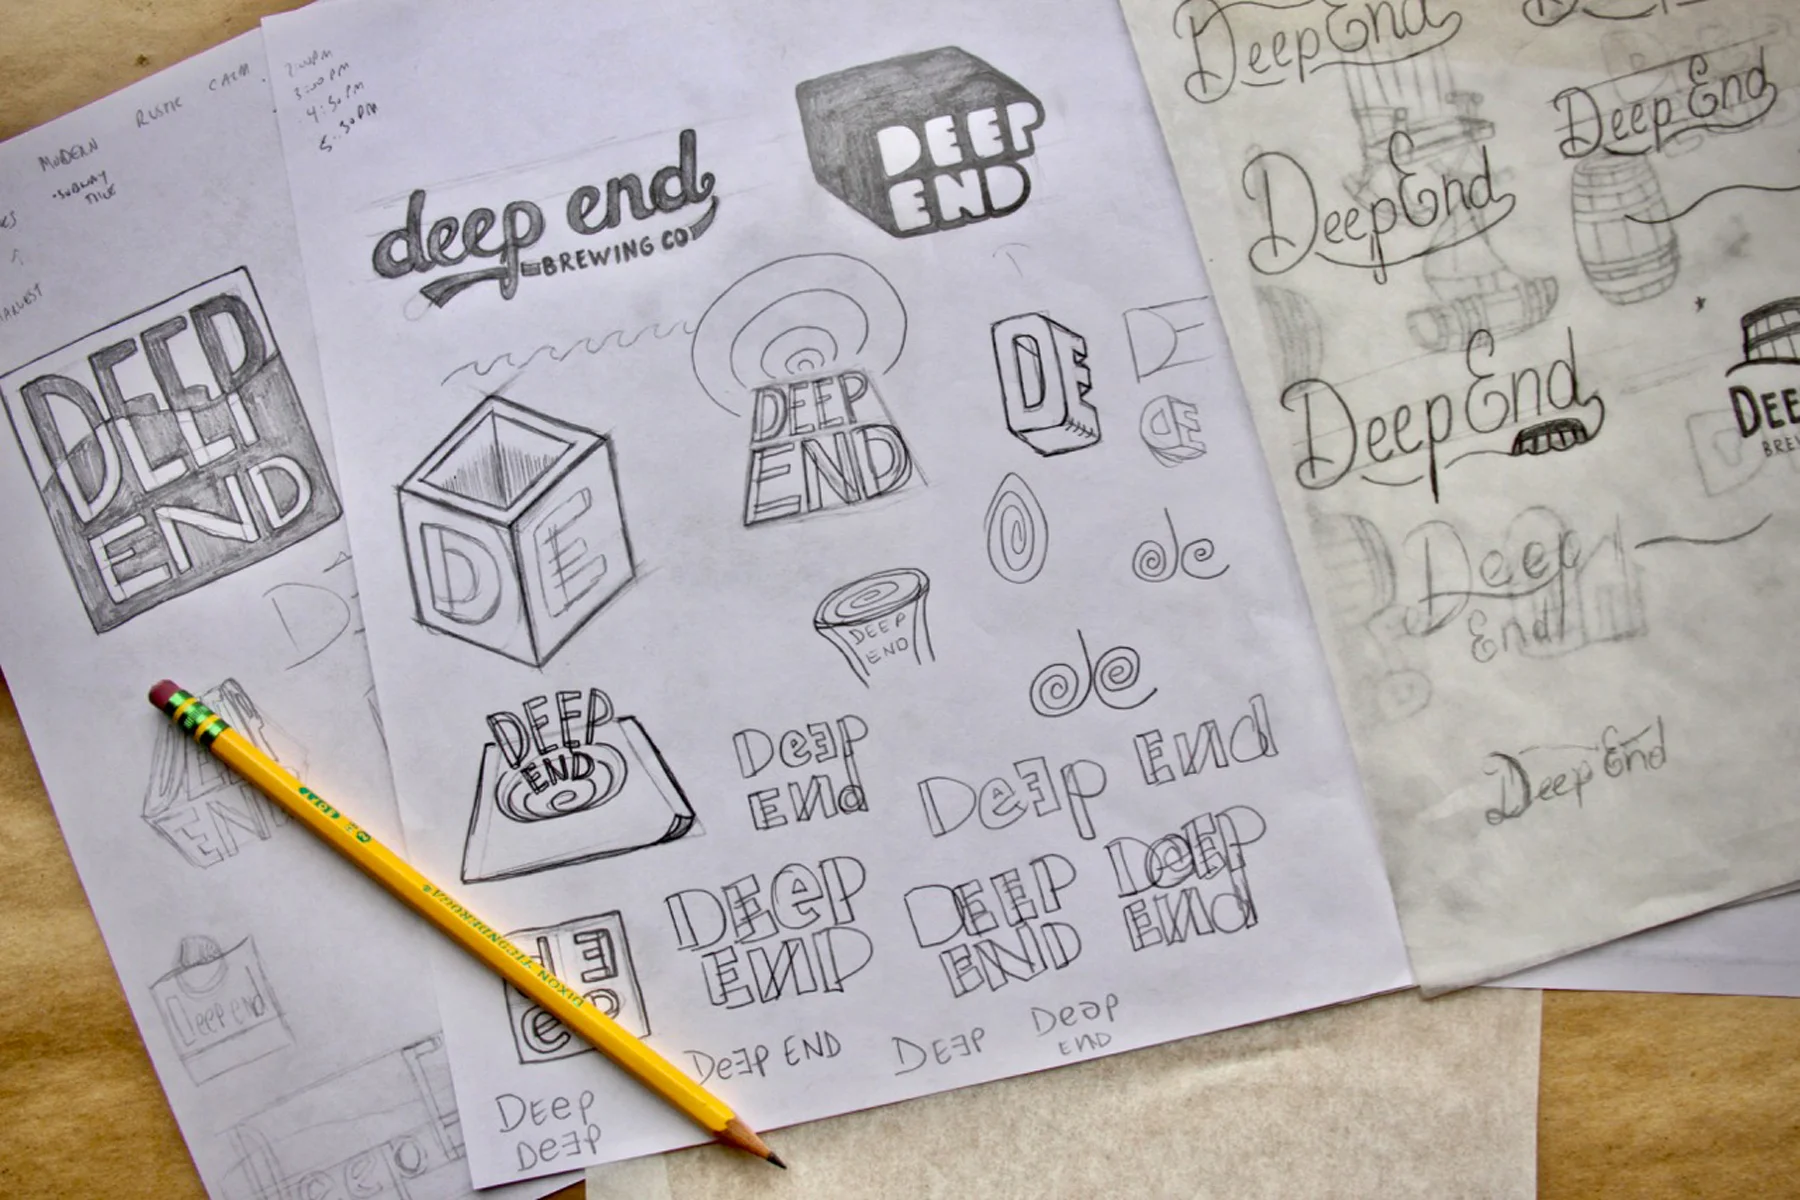 MODERN
RUSTIC
CALM
·SUBWAY
TILE
HARVEST
DEEP
END
Deep end
2:00PM
3:00PM
4:30PM
5:30PM
deep end
BREWING CO
DEEP
END
DEEP
END
DE
DE
DE
D E
DEEP
END
de
de
DEEP
END
DeƎP
ENd
DeƎp
ENd
DEeP
END
DEEP
END
DeeP
ENd
DeƎP END
DEƎP
Deap
END
DEep
DeƎp
DIXON TICONDEROGA
Deep End
Deep End
Deep End
Deep End
Deep
End
Deep End
DEE
BREW